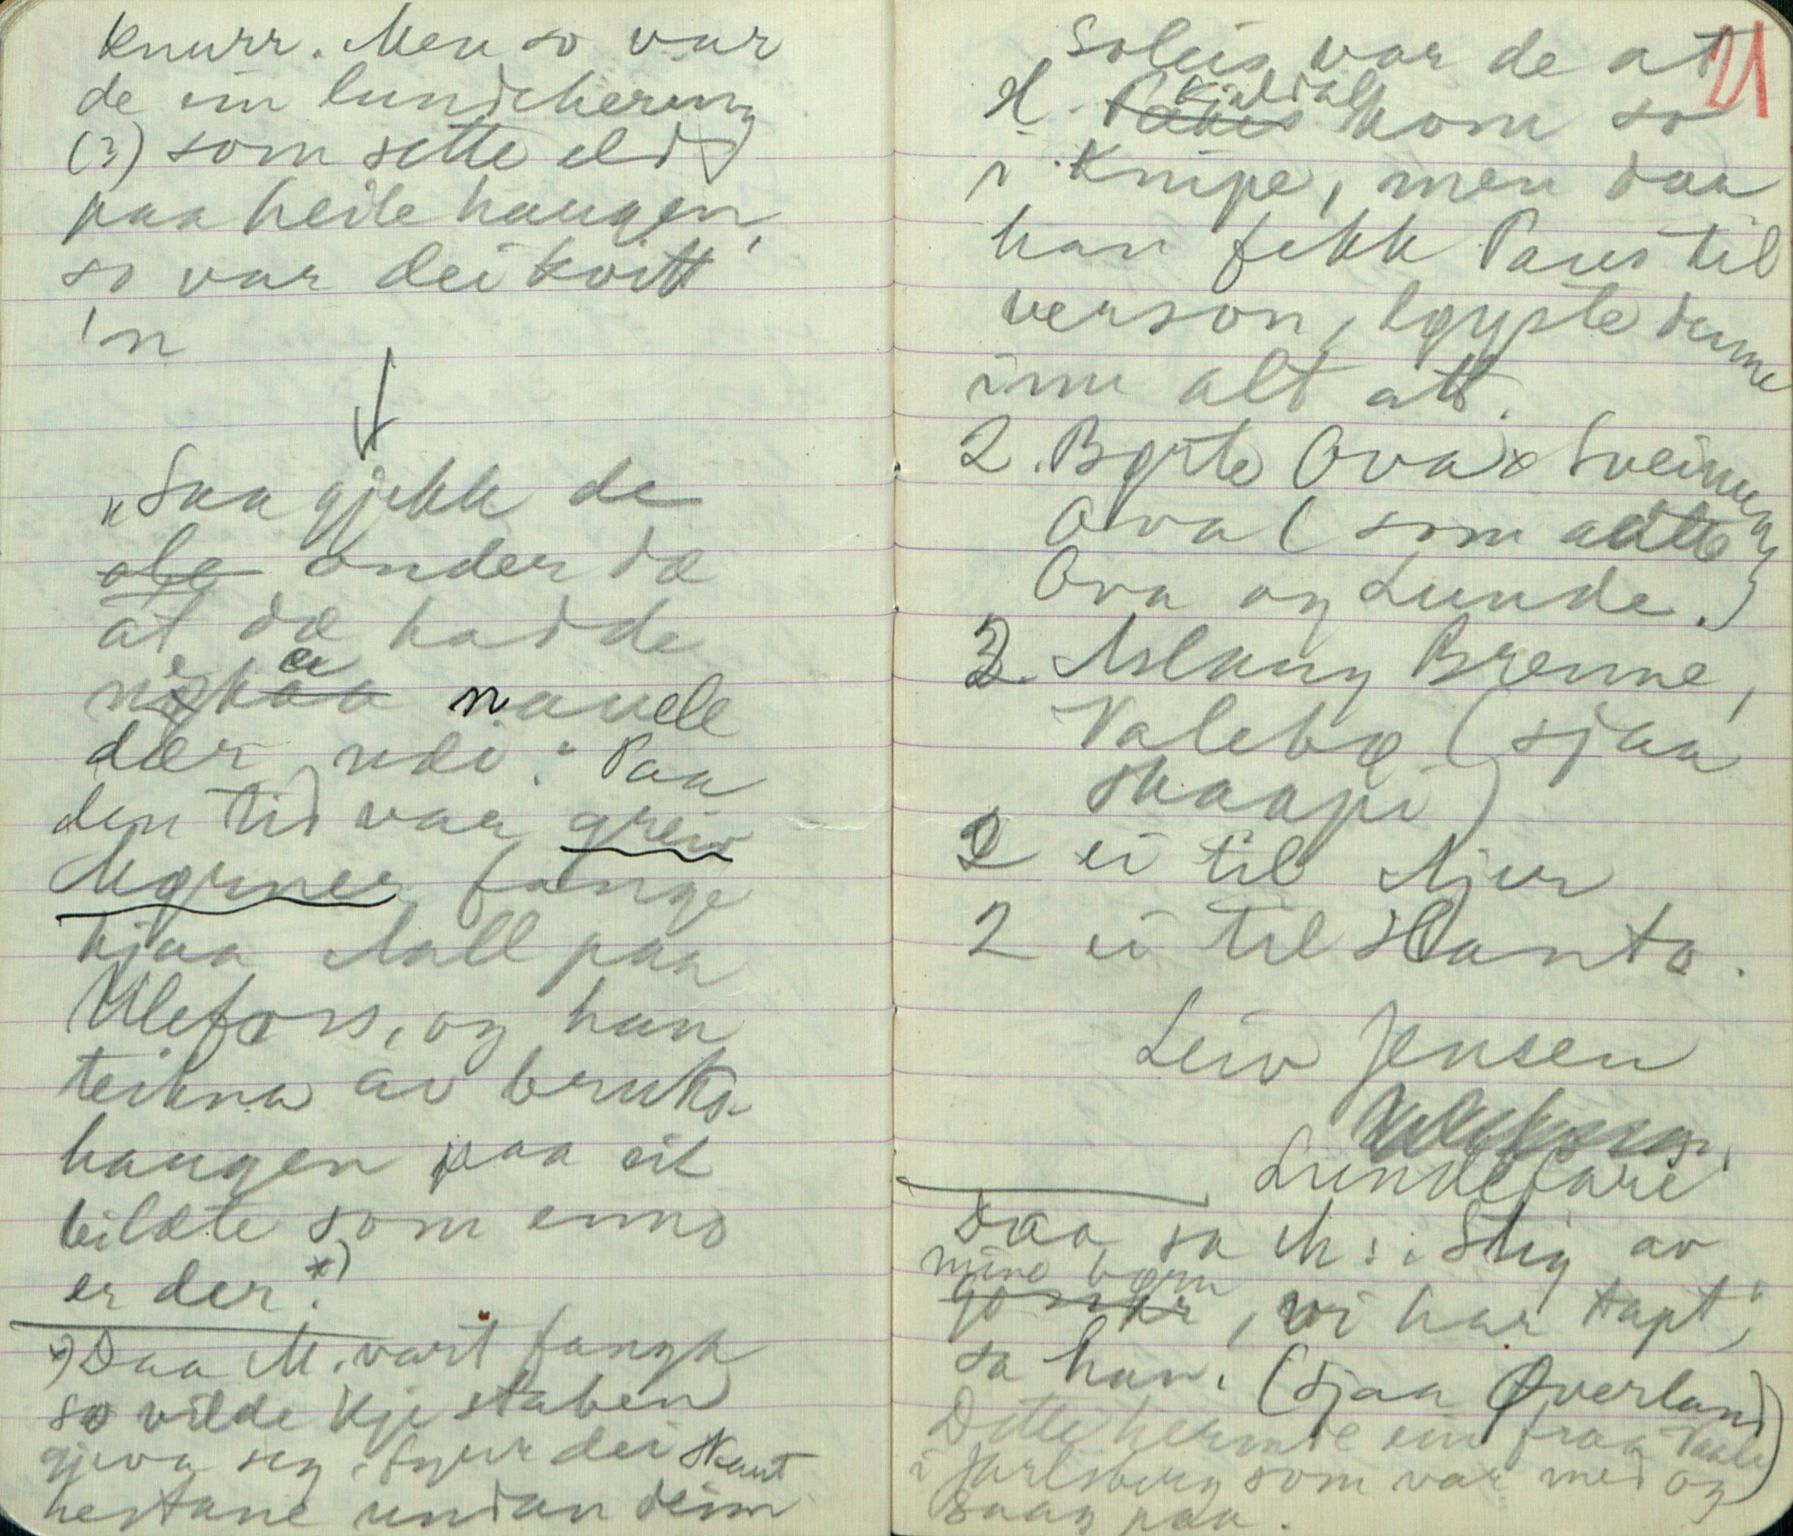 knurr. Men so var
de ein lundehering
(?) som sette eld
paa heile haugen,
so var dei kvitt
'n
"Saa gjekk de
onder dæ
at dæ hadde
nauele
dær nei." Paa
den tid var greiv
Mørner fange
hjaa Aall paa
Ulefoss, og han
teikna av bruks-
haugen paa eit
bilæte som enno
er der.*)
*) Daa M. vart fanga
so vilde kje staben
gjeva seg, fyrr dei skaut
hestane undan deim
21
Soleis var de at
kom so
i knipe, men daa
han fekk Paus til
verson, lyyste denne
inn alt att.
2. Børte Ova & Sveinung
Ova (som aatte
Ova og Lunde.)
3 Aslaug Brenne,
Valebø (sjaa
skaapi)
2 ei til Ajur
2 ei til Hanto.
Leiv Jensen
Lundefaret
Daa sa M: "Stig av
mine børn, vi har tapt",
sa han. (Sjaa Øverland)
Dette hermde ein fraa Vaale
i Jarlsberg som var med og
saag paa.